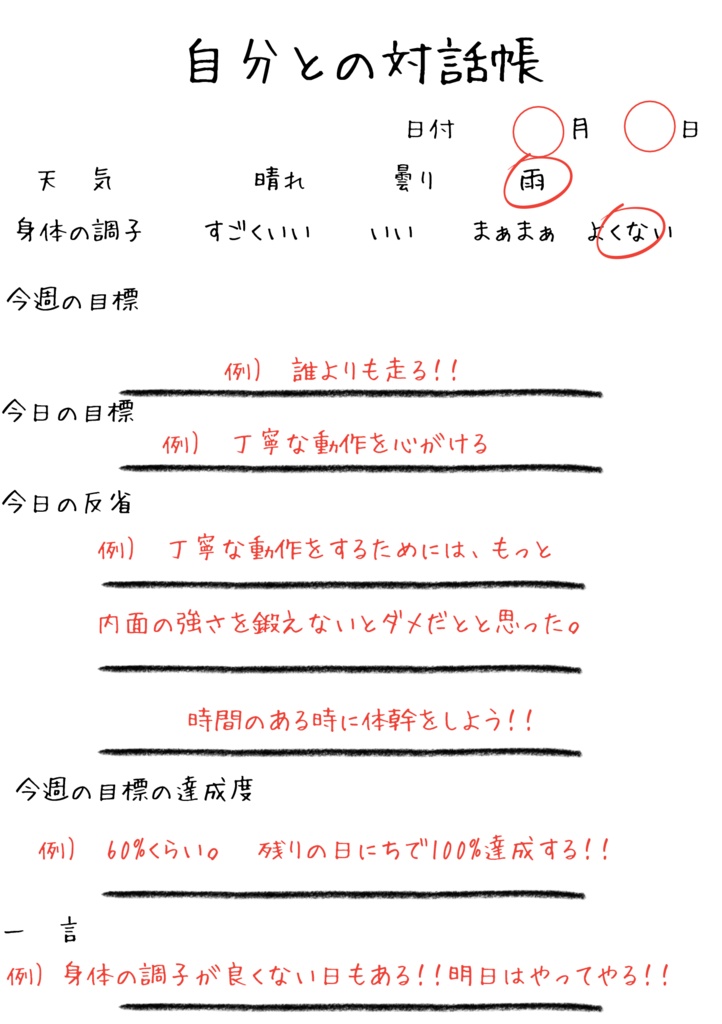 自分との対話帳
日付 ◯月 ◯日
天気 晴れ 曇り 雨
身体の調子 すごくいい いい まぁまぁ よくない
今週の目標
例) 誰よりも走る!!
今日の目標
例) 丁寧な動作を心がける
今日の反省
例) 丁寧な動作をするためには、もっと
内面の強さを鍛えないとダメだとと思った。
時間のある時に体幹をしよう!!
今週の目標の達成度
例) 60%くらい。 残りの日にちで100%達成する!!
一言
例) 身体の調子が良くない日もある!!明日はやってやる!!